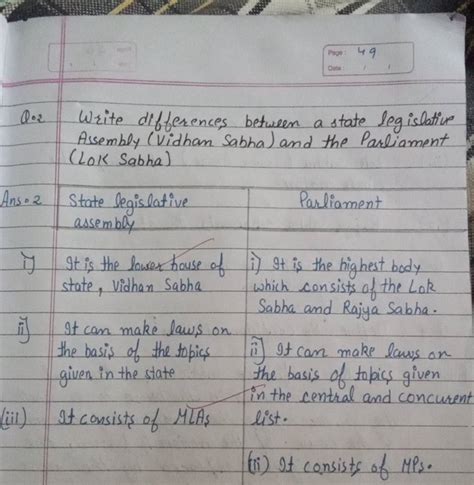 Page: 49
Date: / /
Q.2 Write differences between a state legislative
Assembly (Vidhan Sabha) and the Parliament
(Lok Sabha)
Ans.2 State legislative
assembly
i) It is the lower house of
state, Vidhan Sabha
ii) It can make laws on
the basis of the topics
given in the state
(iii) It consists of MLAs
Parliament
i) It is the highest body
which consists of the Lok
Sabha and Rajya Sabha.
ii) It can make laws on
the basis of topics given
in the central and concurent
list.
(iii) It consists of MPs.